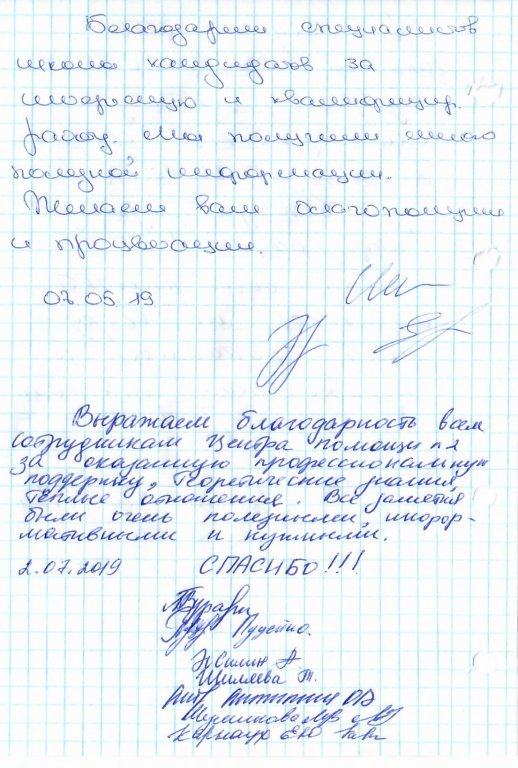 Благодарим специалистов
школы кандидатов за
и квалифицир.
работу. Мы получили много
полезной информации.
Желаем вам благополучия
и процветания.
07.05.19
Выражаем благодарность всем
сотрудникам Центра помощи
за оказанную профессиональную
поддержку, теоретические знания,
тёплые отношения. Все занятия
были очень полезными, инфор-
мативными и нужными.
2.07.2019 СПАСИБО!!!
Шиляева Т.
Карнаух ЕЮ